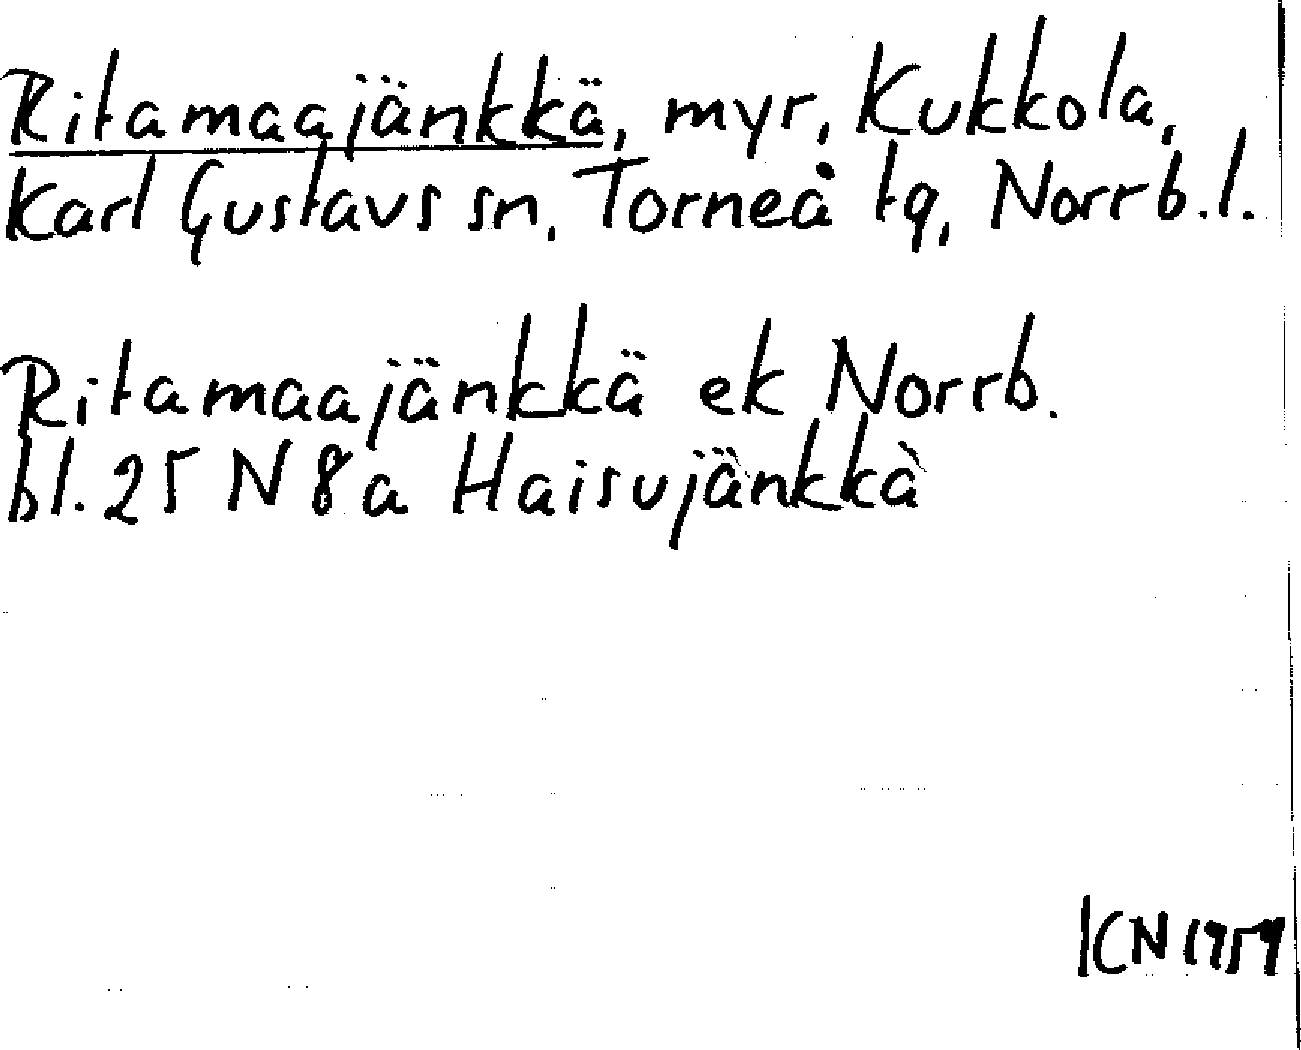 Ritamaajänkkä, myr, Kukkola,
Karl Gustavs sn, Torneå tg, Norrb.l.
Ritamaajänkkä ek Norrb.
bl. 25 N 8a Haisujänkkä
KN 1959